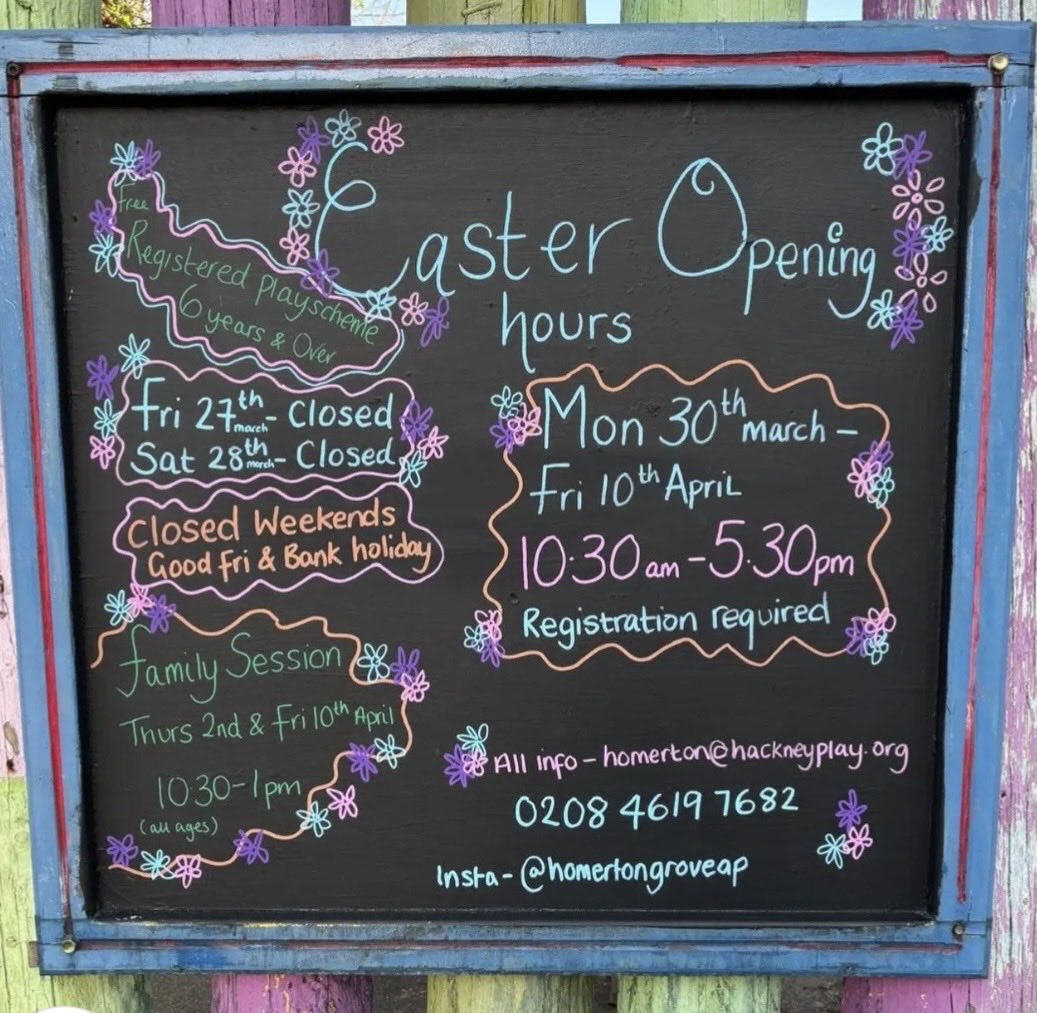 Easter Opening
hours
Free
Registered playscheme
6 years & Over
Fri 27th march - Closed
Sat 28th march - Closed
Closed Weekends
Good Fri & Bank holiday
Family Session
Thurs 2nd & Fri 10th April
10.30-1pm
(all ages)
Mon 30th march -
Fri 10th April
10.30am - 5.30pm
Registration required
All info - homerton@hackneyplay.org
0208 4619 7682
Insta - @homertongroveap